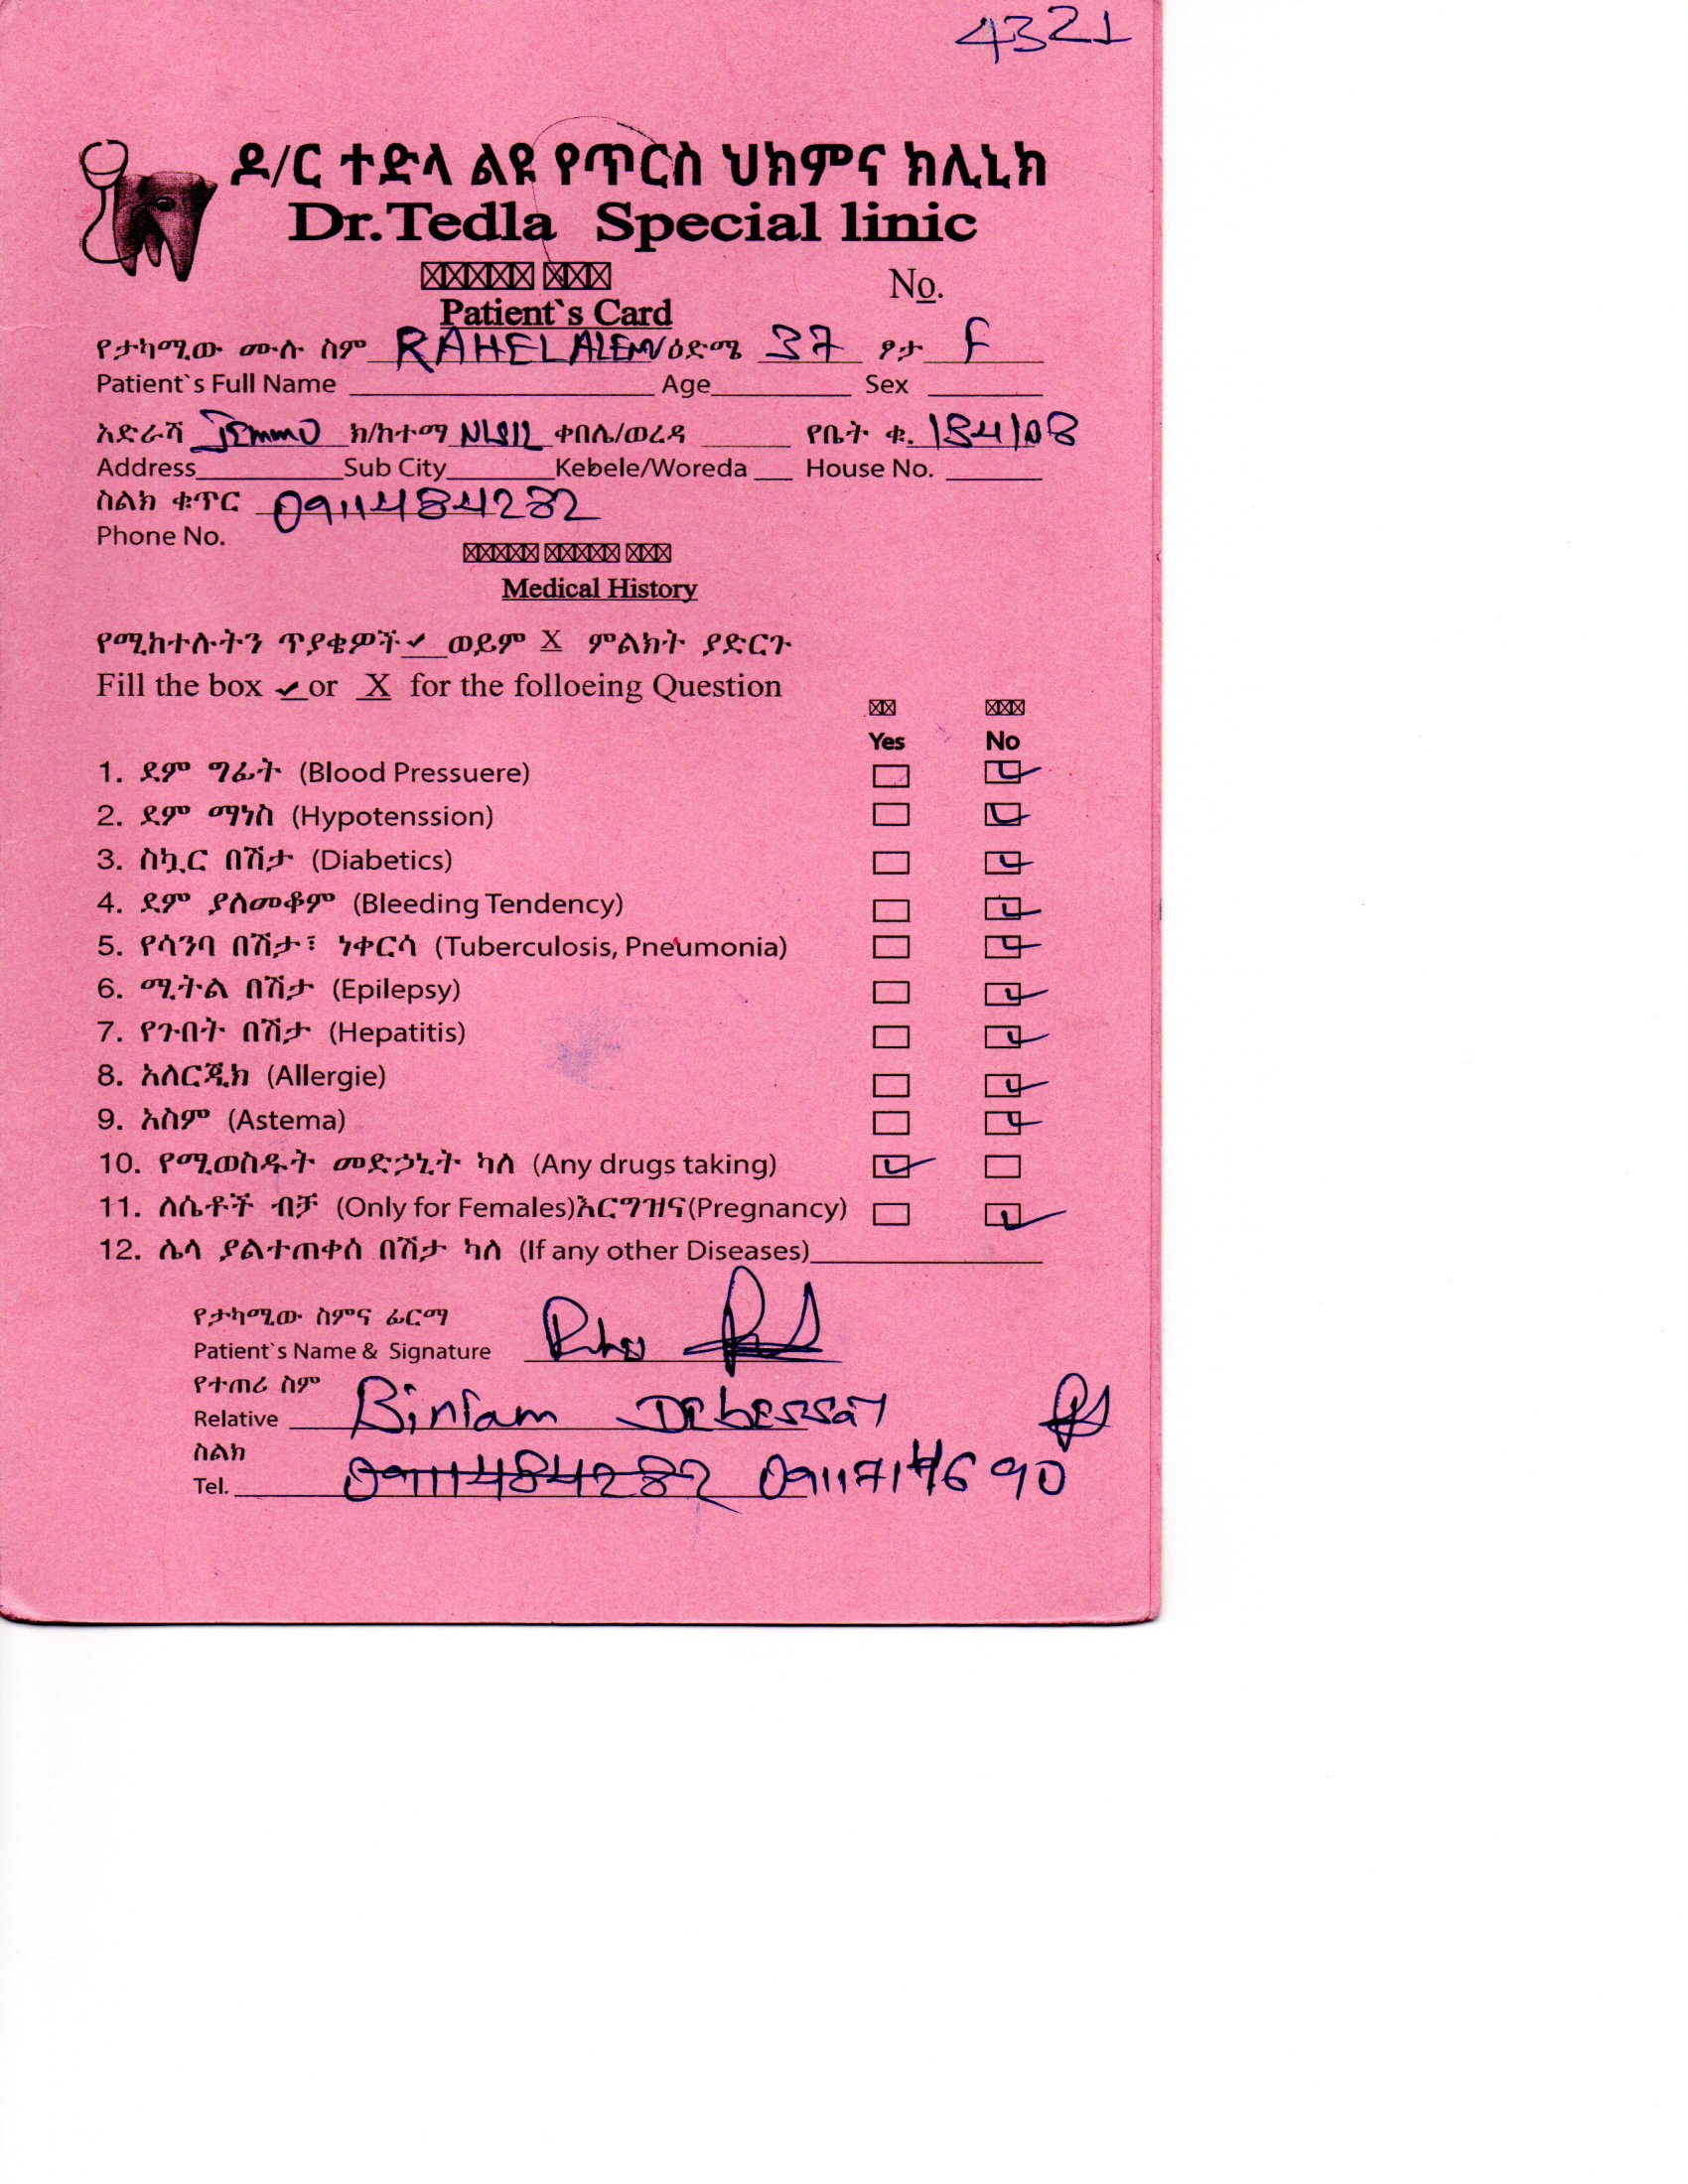 4321
ዶ/ር ተድላ ልዩ የጥርስ ህክምና ክሊኒክ
Dr. Tedla Special linic
No.
Patient`s Card
የታካሚው ሙሉ ስም RAHEL ALEMU ዕድሜ 37 ፆታ F
Patient`s Full Name Age Sex
አድራሻ Jemmo ክ/ከተማ ቀበሌ/ወረዳ የቤት ቁ. 184/08
Address Sub City Kebele/Woreda House No.
ስልክ ቁጥር 0911484282
Phone No.
Medical History
የሚከተሉትን ጥያቄዎች ✓ ወይም X ምልክት ያድርጉ
Fill the box ✓ or X for the folloeing Question
Yes No
1. ደም ግፊት (Blood Pressuere)
2. ደም ማነስ (Hypotenssion)
3. ስኳር በሽታ (Diabetics)
4. ደም ያለመቆም (Bleeding Tendency)
5. የሳንባ በሽታ፣ ነቀርሳ (Tuberculosis, Pneumonia)
6. ሚትል በሽታ (Epilepsy)
7. የጉበት በሽታ (Hepatitis)
8. አለርጂክ (Allergie)
9. አስም (Astema)
10. የሚወስዱት መድኃኒት ካለ (Any drugs taking)
11. ለሴቶች ብቻ (Only for Females)እርግዝና(Pregnancy)
12. ሌላ ያልተጠቀሰ በሽታ ካለ (If any other Diseases)
የታካሚው ስምና ፊርማ
Patient`s Name & Signature
የተጠሪ ስም
Relative Biniam Debessay
ስልክ
Tel. 0911484282 0911714690